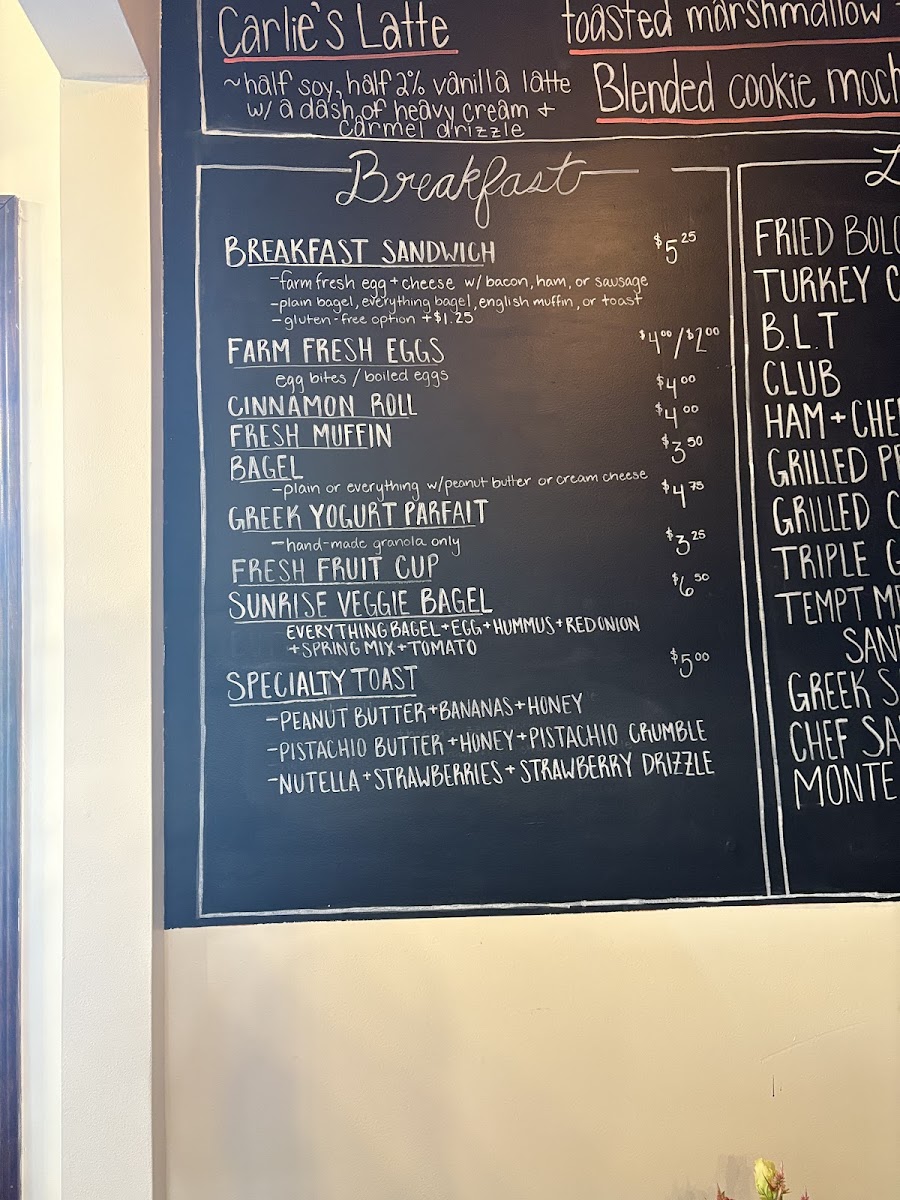 Carlie's Latte
~half soy, half 2% vanilla latte
w/ a dash of heavy cream +
carmel drizzle
toasted marshmallow
Blended cookie moch
Breakfast
BREAKFAST SANDWICH $5.25
-farm fresh egg + cheese w/ bacon, ham, or sausage
-plain bagel, everything bagel, english muffin, or toast
-gluten-free option +$1.25
FARM FRESH EGGS $4.00/$2.00
egg bites / boiled eggs
CINNAMON ROLL $4.00
FRESH MUFFIN $4.00
BAGEL $3.50
-plain or everything w/peanut butter or cream cheese
GREEK YOGURT PARFAIT $4.75
-hand-made granola only
FRESH FRUIT CUP $3.25
SUNRISE VEGGIE BAGEL $6.50
EVERYTHING BAGEL+EGG+HUMMUS+RED ONION
+SPRING MIX+TOMATO
SPECIALTY TOAST $5.00
-PEANUT BUTTER+BANANAS+HONEY
-PISTACHIO BUTTER+HONEY+PISTACHIO CRUMBLE
-NUTELLA+STRAWBERRIES+STRAWBERRY DRIZZLE
L
FRIED BOLO
TURKEY C
B.L.T
CLUB
HAM+CHE
GRILLED P
GRILLED C
TRIPLE G
TEMPT ME
SAN
GREEK S
CHEF SA
MONTE